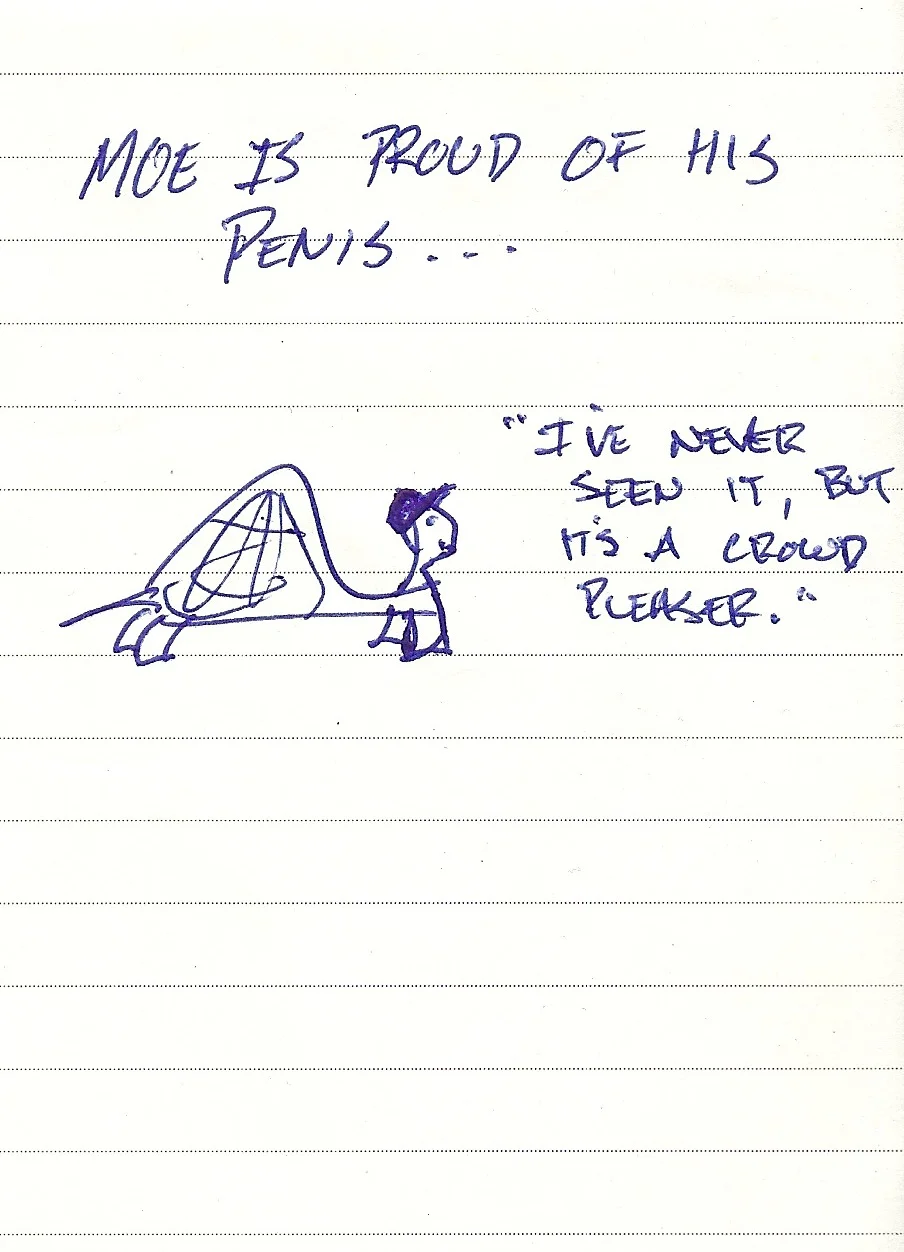 MOE IS PROUD OF HIS
PENIS...
"I'VE NEVER
SEEN IT, BUT
IT'S A CROWD
PLEASER."